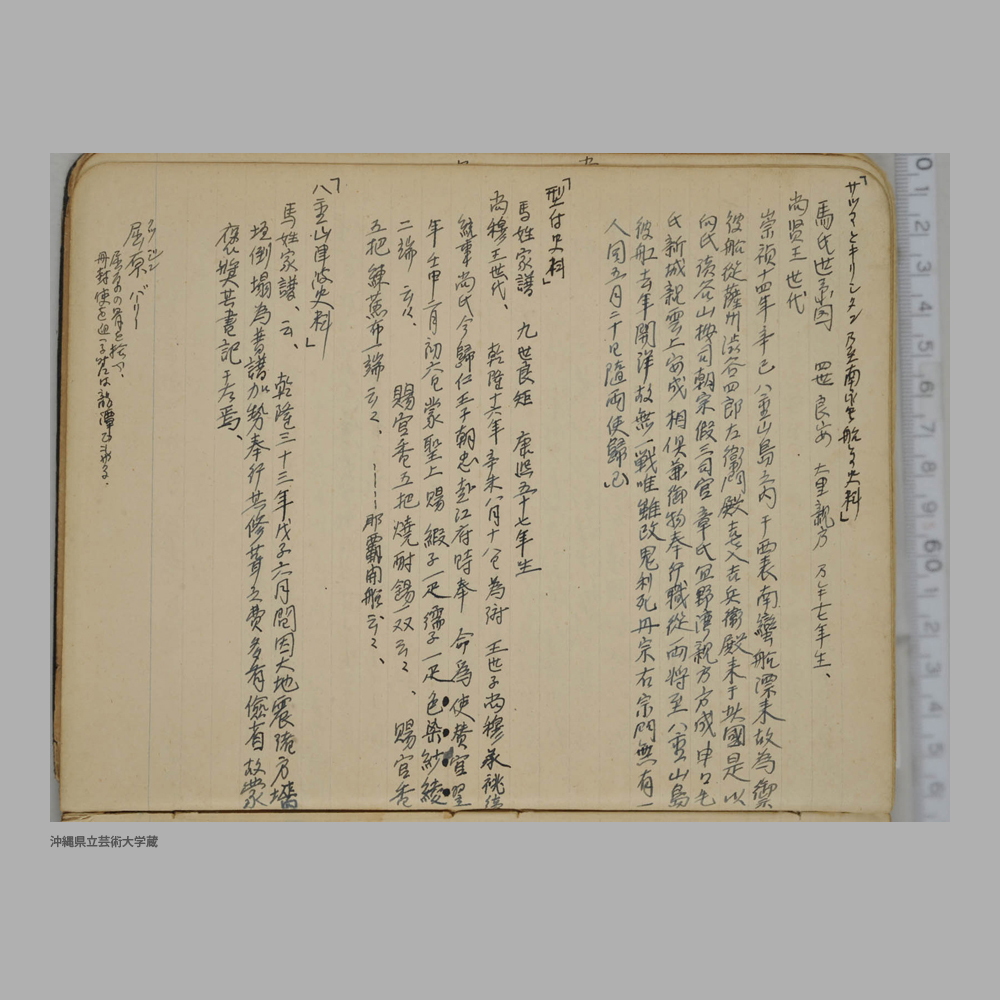 「サツマとキリシタン乃至南蛮船の史料」
馬氏世系図 四世 良安 大里親方 万年七年生、
尚賢王世代
崇禎十四年辛巳八重山島之内于西表南蠻船漂来故為禦
彼船從薩州渋谷四郎左衛門殿 喜入吉兵衛殿来于此國是以
向氏讀谷山按司朝宗假三司官章氏宜野湾親方方成申口毛
氏新城親雲上安成相倶兼御物奉行職從両将至八重山島
彼船去年開洋故無一戦唯雖改鬼利死丹宗右宗門無有一
人同五月二十日隨両使歸
「型付史料」
馬姓家譜 九世良矩 康熙五十七年生
尚穆王世代、 乾隆十六年辛未八月十八日為附 王世子尚穆承祧
統事尚氏今歸仁王子朝忠赴江府時奉 命為使賛官翌
年壬申二月初六日蒙聖上賜 緞子一疋繻子一疋色染紗綾
二端 云々、 賜官香五把焼酎錫一双云々、 賜官香
五把練蕉布二端云々、 ……那覇開船云々、
「八重山津波史料」
馬姓家譜、云、 乾隆三十三年戊子六月間因大地震陵方墻
垣倒塌為普請加勢奉行其修葺之費多有儉省故蒙
褒奨其書記于左焉、
屈原バーリー
屈原の骨を拾つ、
冊封使を迎ふ 龍潭